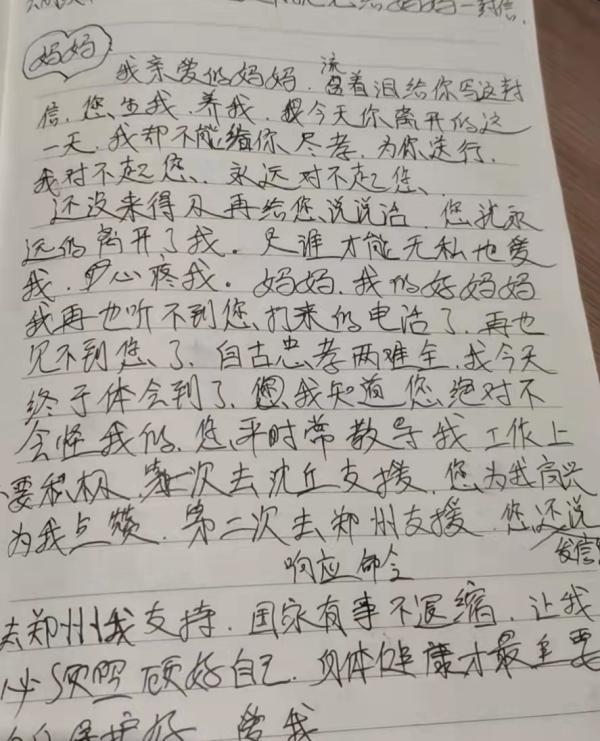 妈妈一封信.
妈妈
我亲爱的妈妈.流着泪给你写这封
信.您生我.养我.今天你离开的这
一天.我却不能给你尽孝.为你送行.
我对不起您.永远对不起您.
还没来得及再给您说说话.您就永
远的离开了我。只谁才能无私地爱
我.心疼我。妈妈.我的好妈妈
我再也听不到您打来的电话了.再也
见不到您了.自古忠孝两难全.我今天
终于体会到了.我知道您绝对不
会怪我的.您平时常教导我工作上
要积极.第一次去沈丘支援.您为我高兴
为我点赞.第二次去郑州支援.您还说
发信
响应命令
去郑州我支持.国家有事不退缩.让我
必须照顾好自己.身体健康才最重要
保护好 爱我